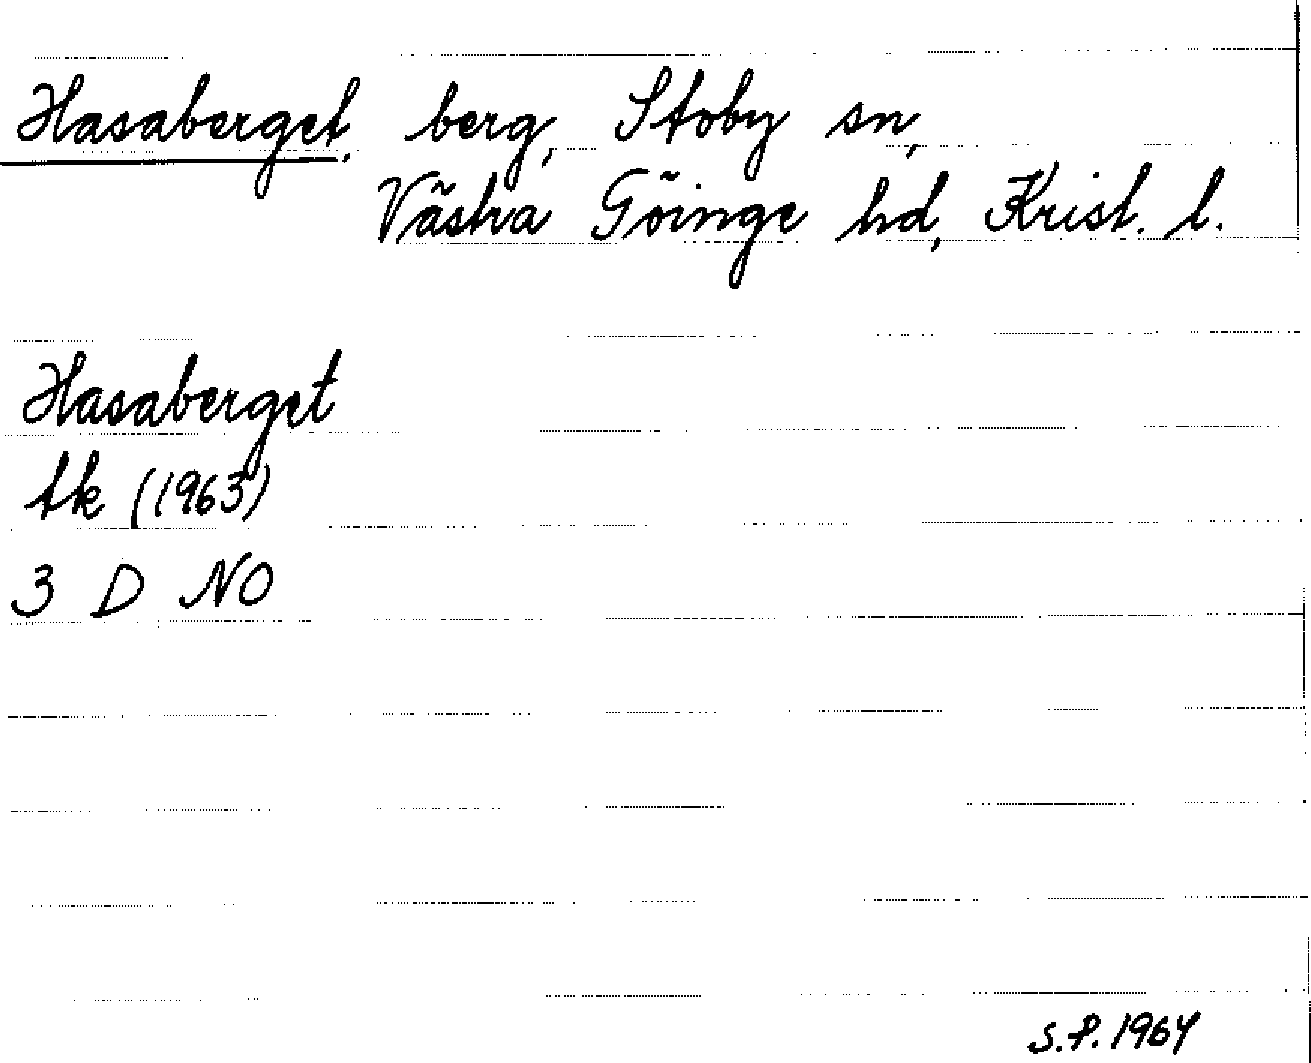 Hasaberget, berg, Stoby sn,
Västra Göinge hd, Krist. l.
Hasaberget
tk (1963)
3 D NO
S.P. 1964